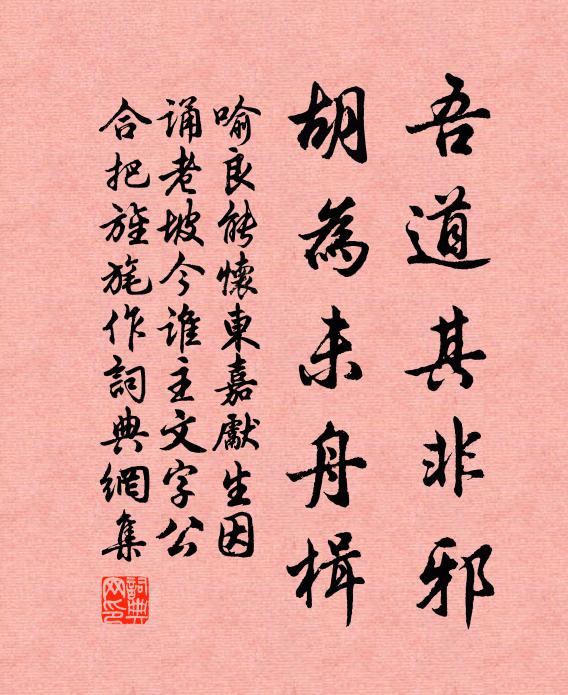 吾道其非邪
胡為未舟楫
喻良能懷東嘉獻生因
誦老坡今誰主文字公
合把旌旄作詞典網集
詞典网印